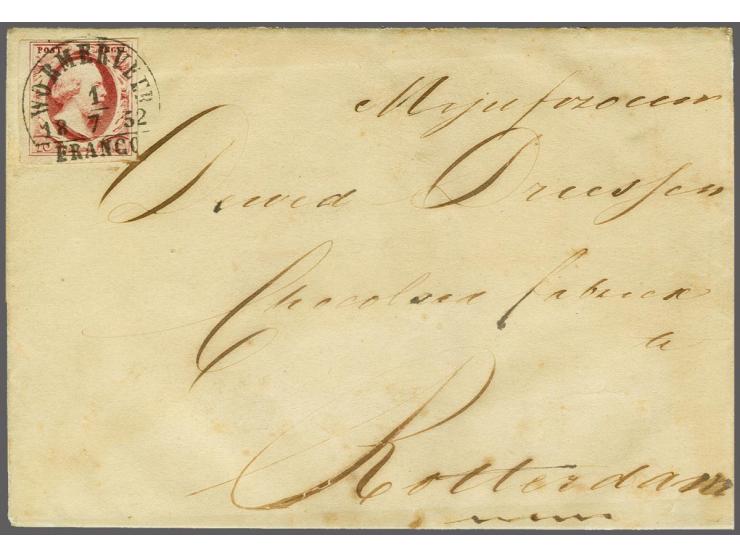 POST ZEGEL
WORMERVEER
1
18 7 52
FRANCO
Mejufvrouw
Dewed Driessen
Chocolaad fabriek
te
Rotterdam